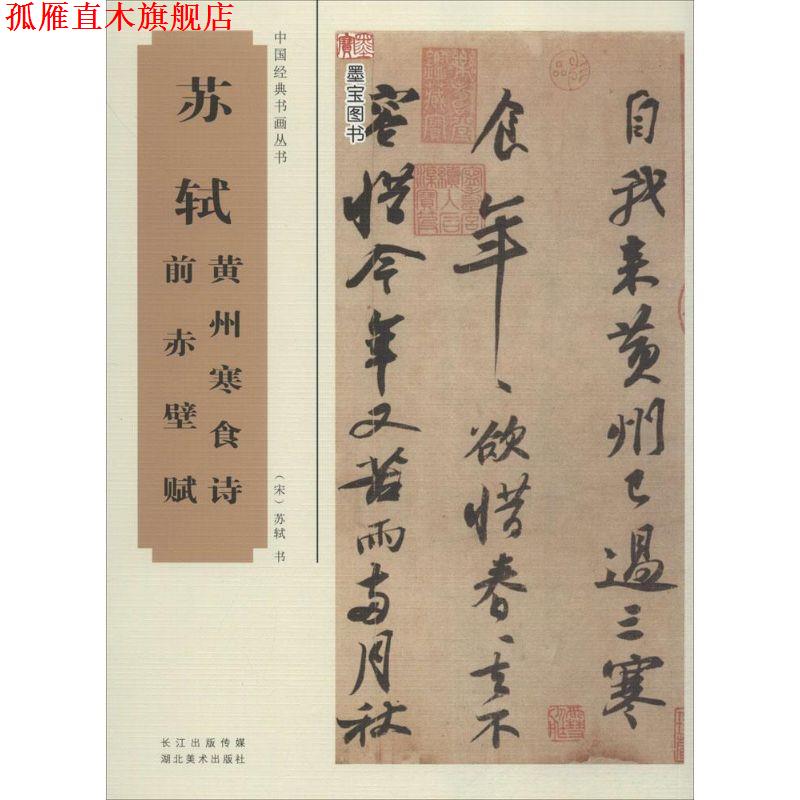 孤雁直木旗舰店
中国经典书画丛书
苏轼
黄州寒食诗
前赤壁赋
（宋）苏轼 书
长江出版传媒
湖北美术出版社
墨宝图书
自我来黄州已過三寒
食年〻欲惜春〻去不
容惜今年又苦雨两月秋